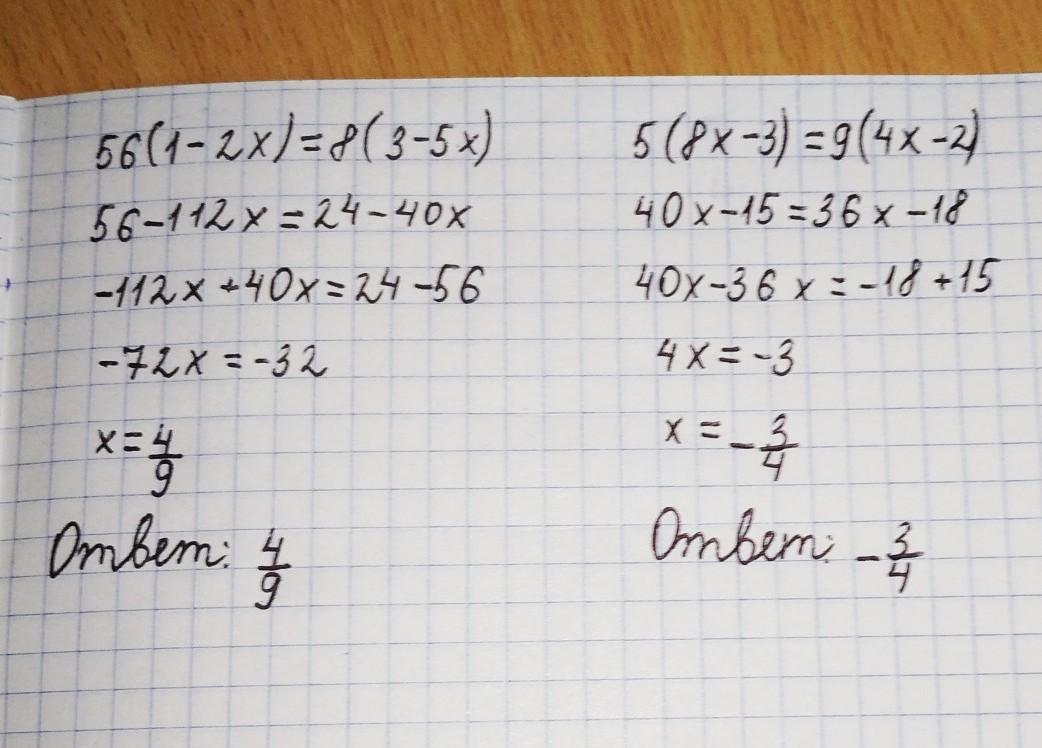 56(1-2x)=8(3-5x)
56-112x=24-40x
-112x+40x=24-56
-72x=-32
x=4/9
Ответ: 4/9
5(8x-3)=9(4x-2)
40x-15=36x-18
40x-36x=-18+15
4x=-3
x=-3/4
Ответ: -3/4